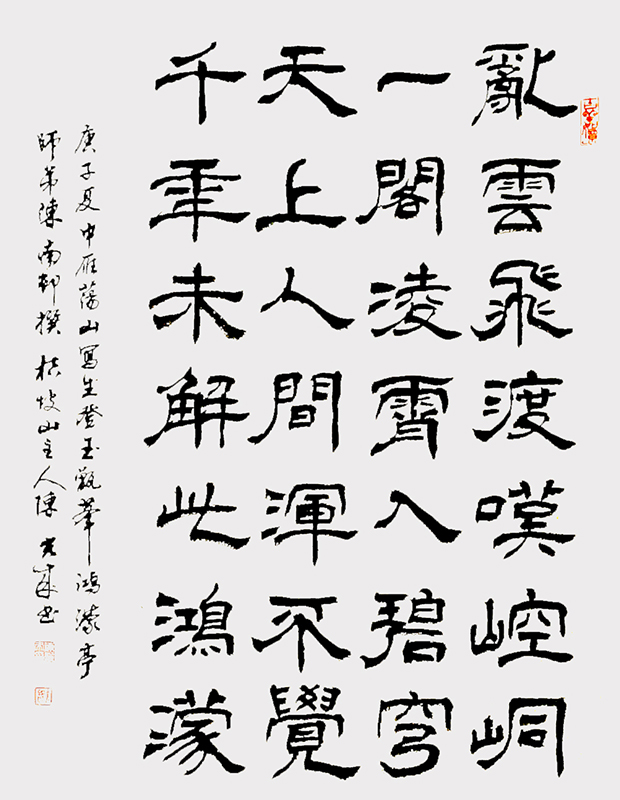 亂雲飛渡嘆崆峒
一閣凌霄入碧穹
天上人間渾不覺
千年未解此鴻濛
庚子夏中雁蕩山寫生登玉甑峯鴻濛亭
師弟陳南邨撰 桔坡山主人陳 書